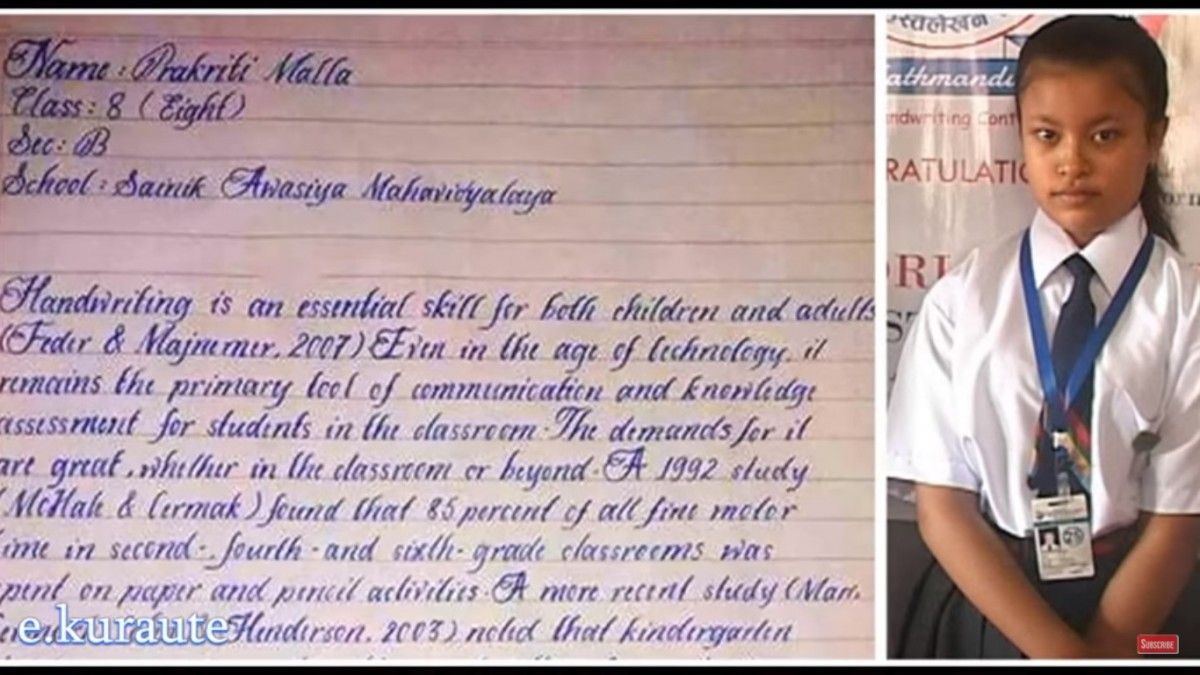 Name: Prakriti Malla
Class: 8 (Eight)
Sec: B
School: Sainik Awasiya Mahavidyalaya
Handwriting is an essential skill for both children and adults
(Feder & Majnemer, 2007) Even in the age of technology, it
remains the primary tool of communication and knowledge
assessment for students in the classroom. The demands for it
are great, whether in the classroom or beyond. A 1992 study
(McHale & Cermak) found that 85 percent of all fine motor
ime in second-, fourth-and sixth-grade classrooms was
pent on paper and pencil activities. A more recent study (Marr,
Henderson, 2003) noted that kindergarten
e.kuraute
स्तलेखन
athmandu
ndwriting Cont
RATULATI
SUBSCRIBE